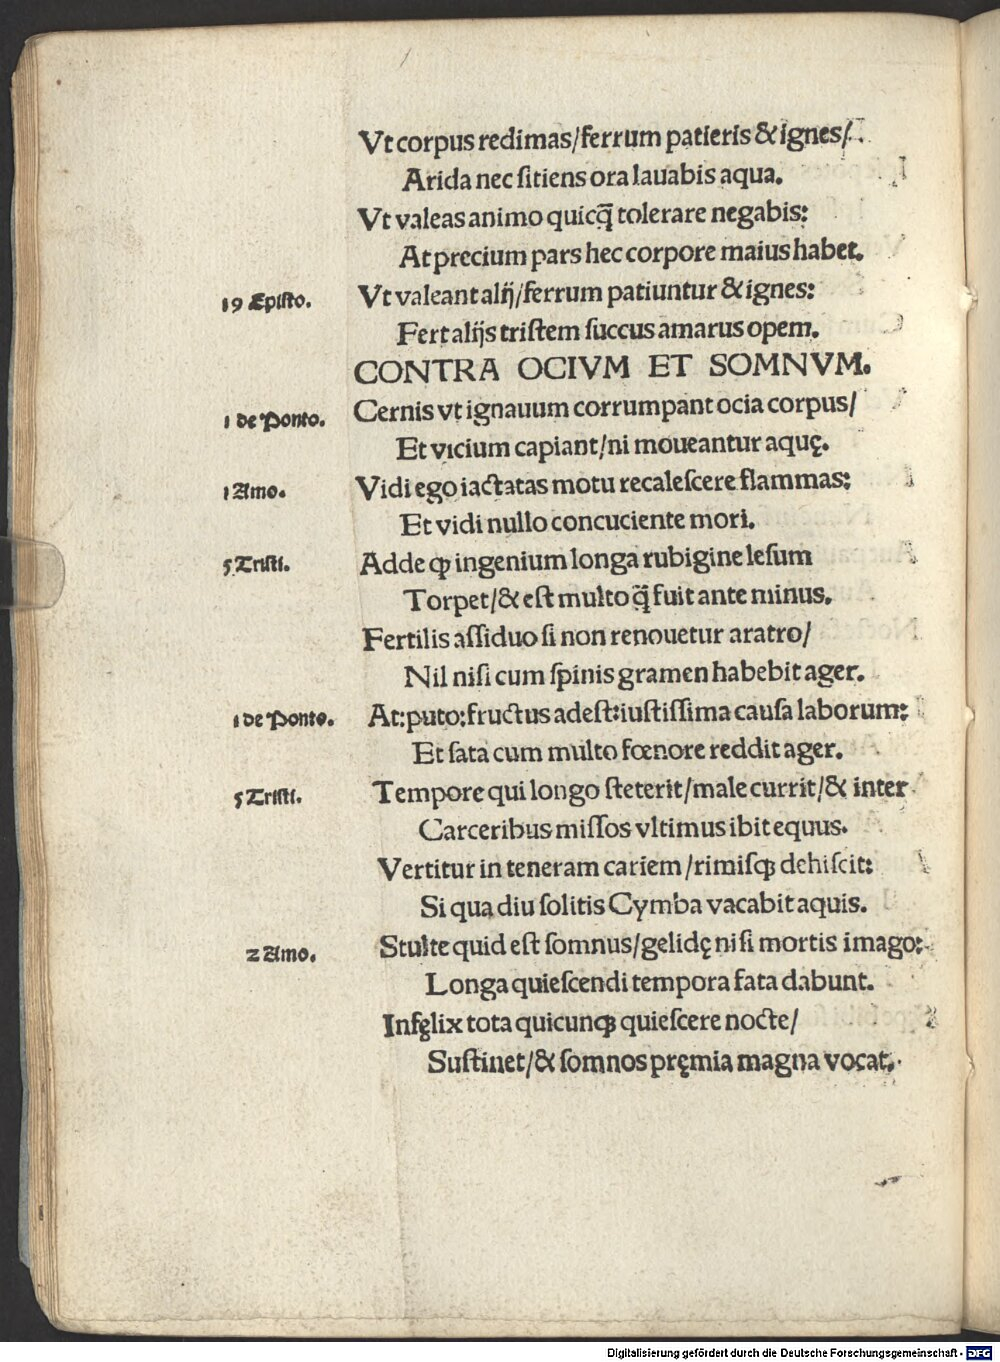 Vt corpus redimas/ferrum patieris & ignes/
Arida nec sitiens ora lauabis aqua.
Vt valeas animo quicq̄ tolerare negabis:
At precium pars hec corpore maius habet.
19 Episto. Vt valeant alij/ferrum patiuntur & ignes:
Fert alijs tristem succus amarus opem.
CONTRA OCIVM ET SOMNVM.
1 de Ponto. Cernis vt ignauum corrumpant ocia corpus/
Et vicium capiant/ni moueantur aquę.
1 Amo. Vidi ego iactatas motu recalescere flammas:
Et vidi nullo concuciente mori.
5 Tristi. Adde ꝙ ingenium longa rubigine lesum
Torpet/& est multo q̄ fuit ante minus.
Fertilis assiduo si non renouetur aratro/
Nil nisi cum spinis gramen habebit ager.
1 de Ponto. At:puto:fructus adest:iustissima causa laborum:
Et sata cum multo fœnore reddit ager.
5 Tristi. Tempore qui longo steterit/male currit/& inter
Carceribus missos vltimus ibit equus.
Vertitur in teneram cariem/rimisqꝫ dehiscit:
Si qua diu solitis Cymba vacabit aquis.
2 Amo. Stulte quid est somnus/gelidę nisi mortis imago:
Longa quiescendi tempora fata dabunt.
Infęlix tota quicunqꝫ quiescere nocte/
Sustinet/& somnos pręmia magna vocat.
Digitalisierung gefördert durch die Deutsche Forschungsgemeinschaft - DFG